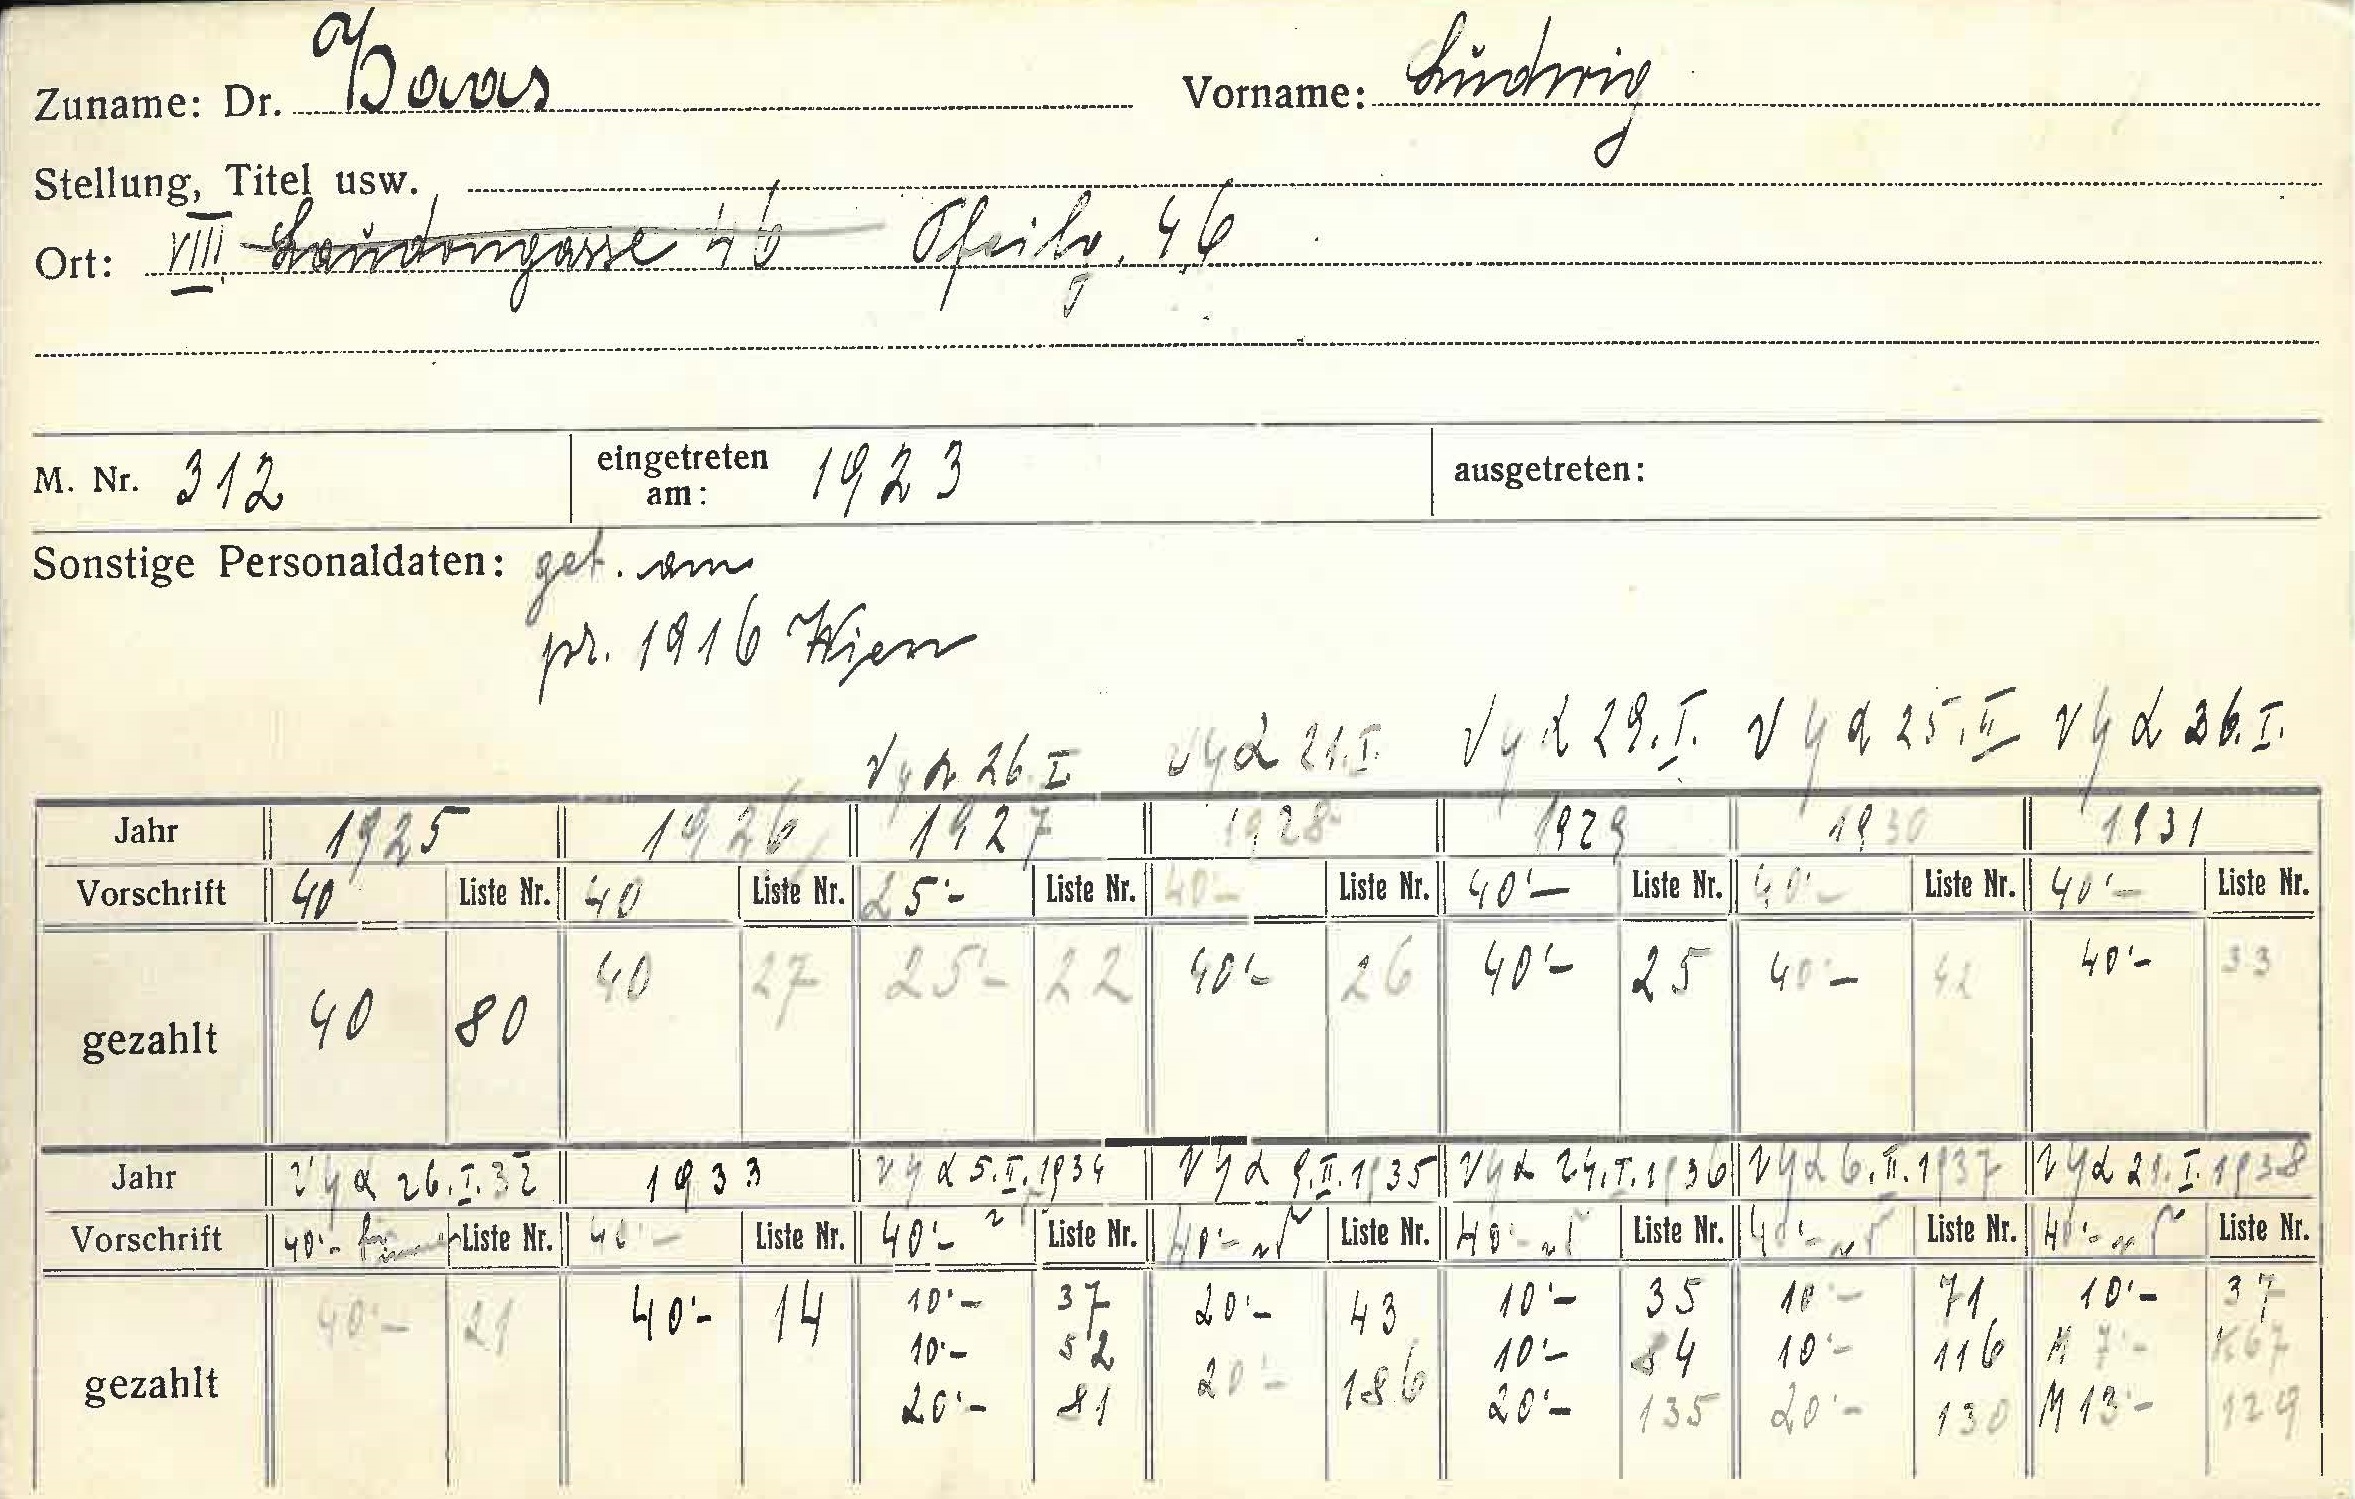 Zuname: Dr. Vorname: Ludwig
Stellung, Titel usw.
Ort: VIII. Laudongasse 46 Pfeilg. 46
M. Nr. 312 eingetreten am: 1923 ausgetreten:
Sonstige Personaldaten: geb. am
pr. 1916 Wien
26.I. 21.I. 29.I. 25.II 26.I.
Jahr 1925 1926 1927 1928 1929 1930 1931
Vorschrift 40 Liste Nr. 40 Liste Nr. 25'- Liste Nr. 40'- Liste Nr. 40'- Liste Nr. 40'- Liste Nr. 40'- Liste Nr.
gezahlt 40 80 40 27 25'- 22 40'- 26 40'- 25 40'- 42 40'- 33
Jahr 26.I.32 1933 5.II.1934 9.II.1935 24.I.1936 6.II.1937 21.I.1938
Vorschrift 40'- Liste Nr. 40'- Liste Nr. 40'- Liste Nr. 40'- Liste Nr. 40'- Liste Nr. 40'- Liste Nr. 40'- Liste Nr.
gezahlt 40'- 21 40'- 14 10'- 37 20'- 43 10'- 35 10'- 71 10'- 37
10'- 52 10'- 84 10'- 116 7'- 67
20'- 81 20'- 186 20'- 135 20'- 130 M 13'- 129